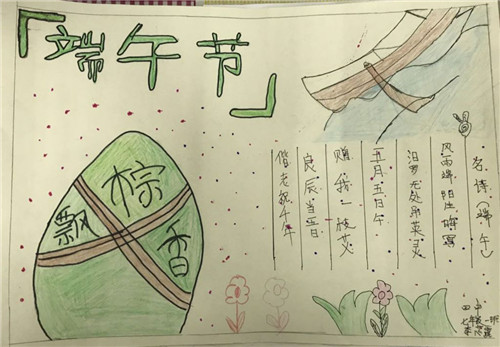 「端午节」
棕
飘香
名诗(端午)
风雨端阳生晦冥
汨罗无处吊英灵
五月五日午
赠我一枝艾
良辰当五日
偕老祝千年